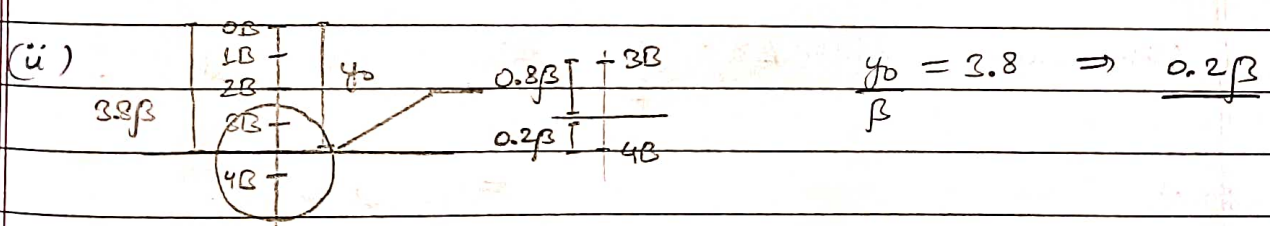 (ii)
0B
1B
2B
3B
4B
3.8β
y₀
0.8β
0.2β
3B
4B
y₀/β = 3.8 ⇒ 0.2β